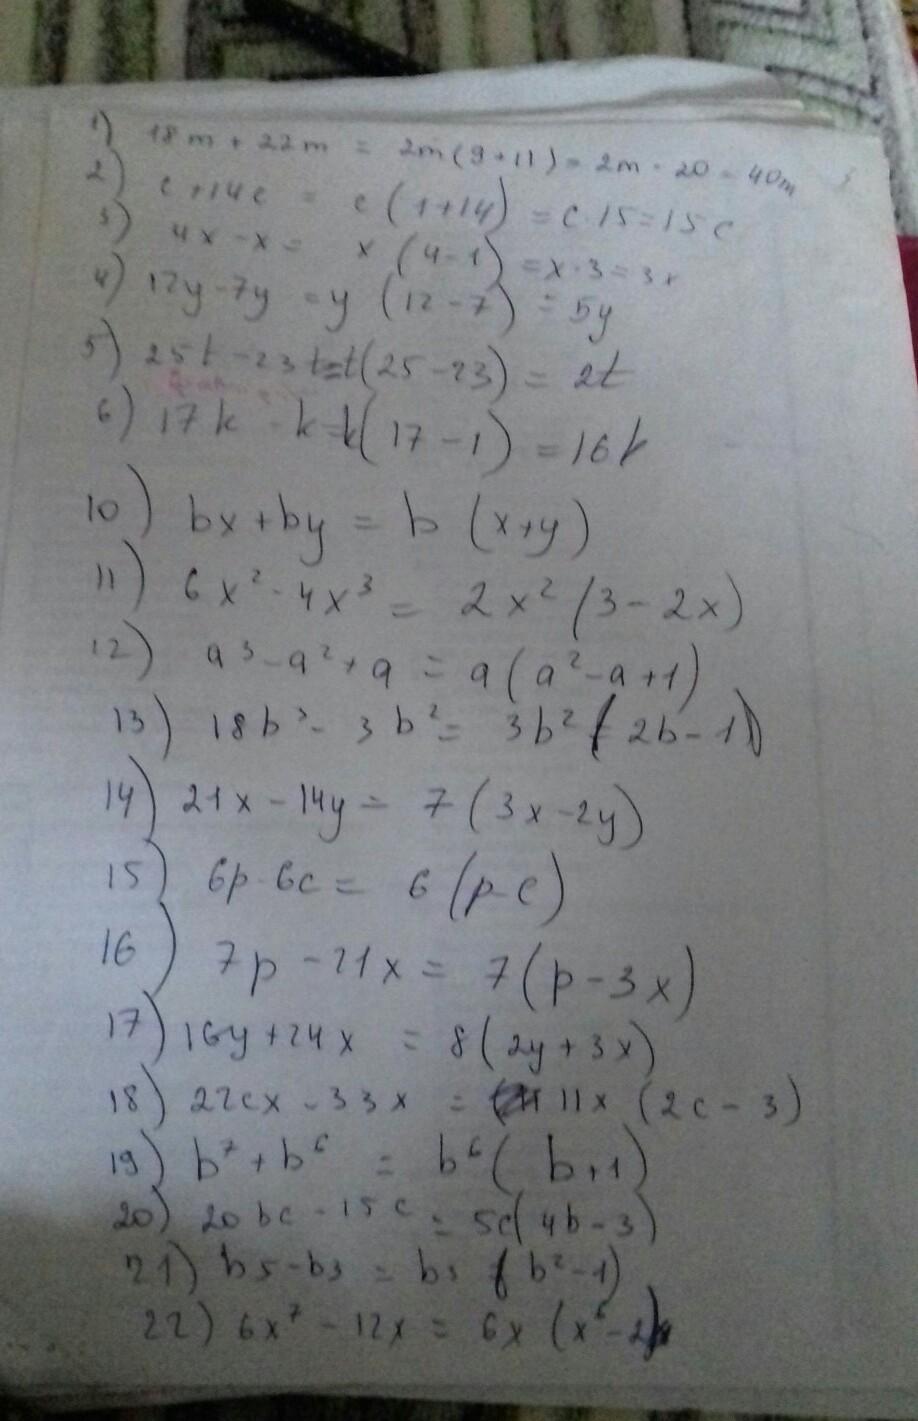 1) 18m + 22m = 2m(9+11) = 2m · 20 = 40m
2) c+14c = c(1+14) = c·15=15c
3) 4x-x= x(4-1) =x·3=3x
4) 12y-7y =y(12-7) = 5y
5) 25t-23t=t(25-23) = 2t
6) 17k - k=k(17-1) =16k
10) bx+by = b (x+y)
11) 6x²-4x³ = 2x²(3-2x)
12) a³-a²+a = a(a²-a+1)
13) 18b³- 3b²= 3b²(2b-1)
14) 21x-14y= 7(3x-2y)
15) 6p-6c= 6(p-c)
16) 7p-21x= 7(p-3x)
17) 16y+24x = 8(2y+3x)
18) 22cx-33x = 11x (2c-3)
19) b⁷+b⁶ = b⁶(b+1)
20) 20bc-15c = 5c(4b-3)
21) b5-b3 = b3 (b²-1)
22) 6x⁷-12x = 6x (x⁶-2)